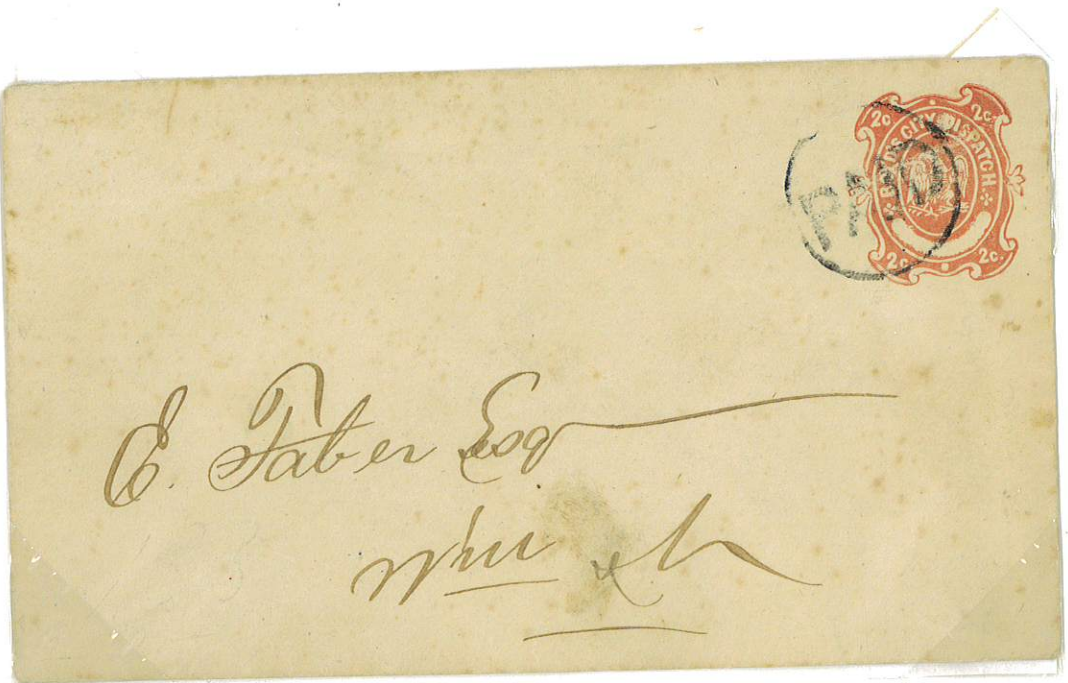 2c. 2c.
BOYD'S CITY DISPATCH
PAID
2c. 2c.
E. Faber Esq
Wm St